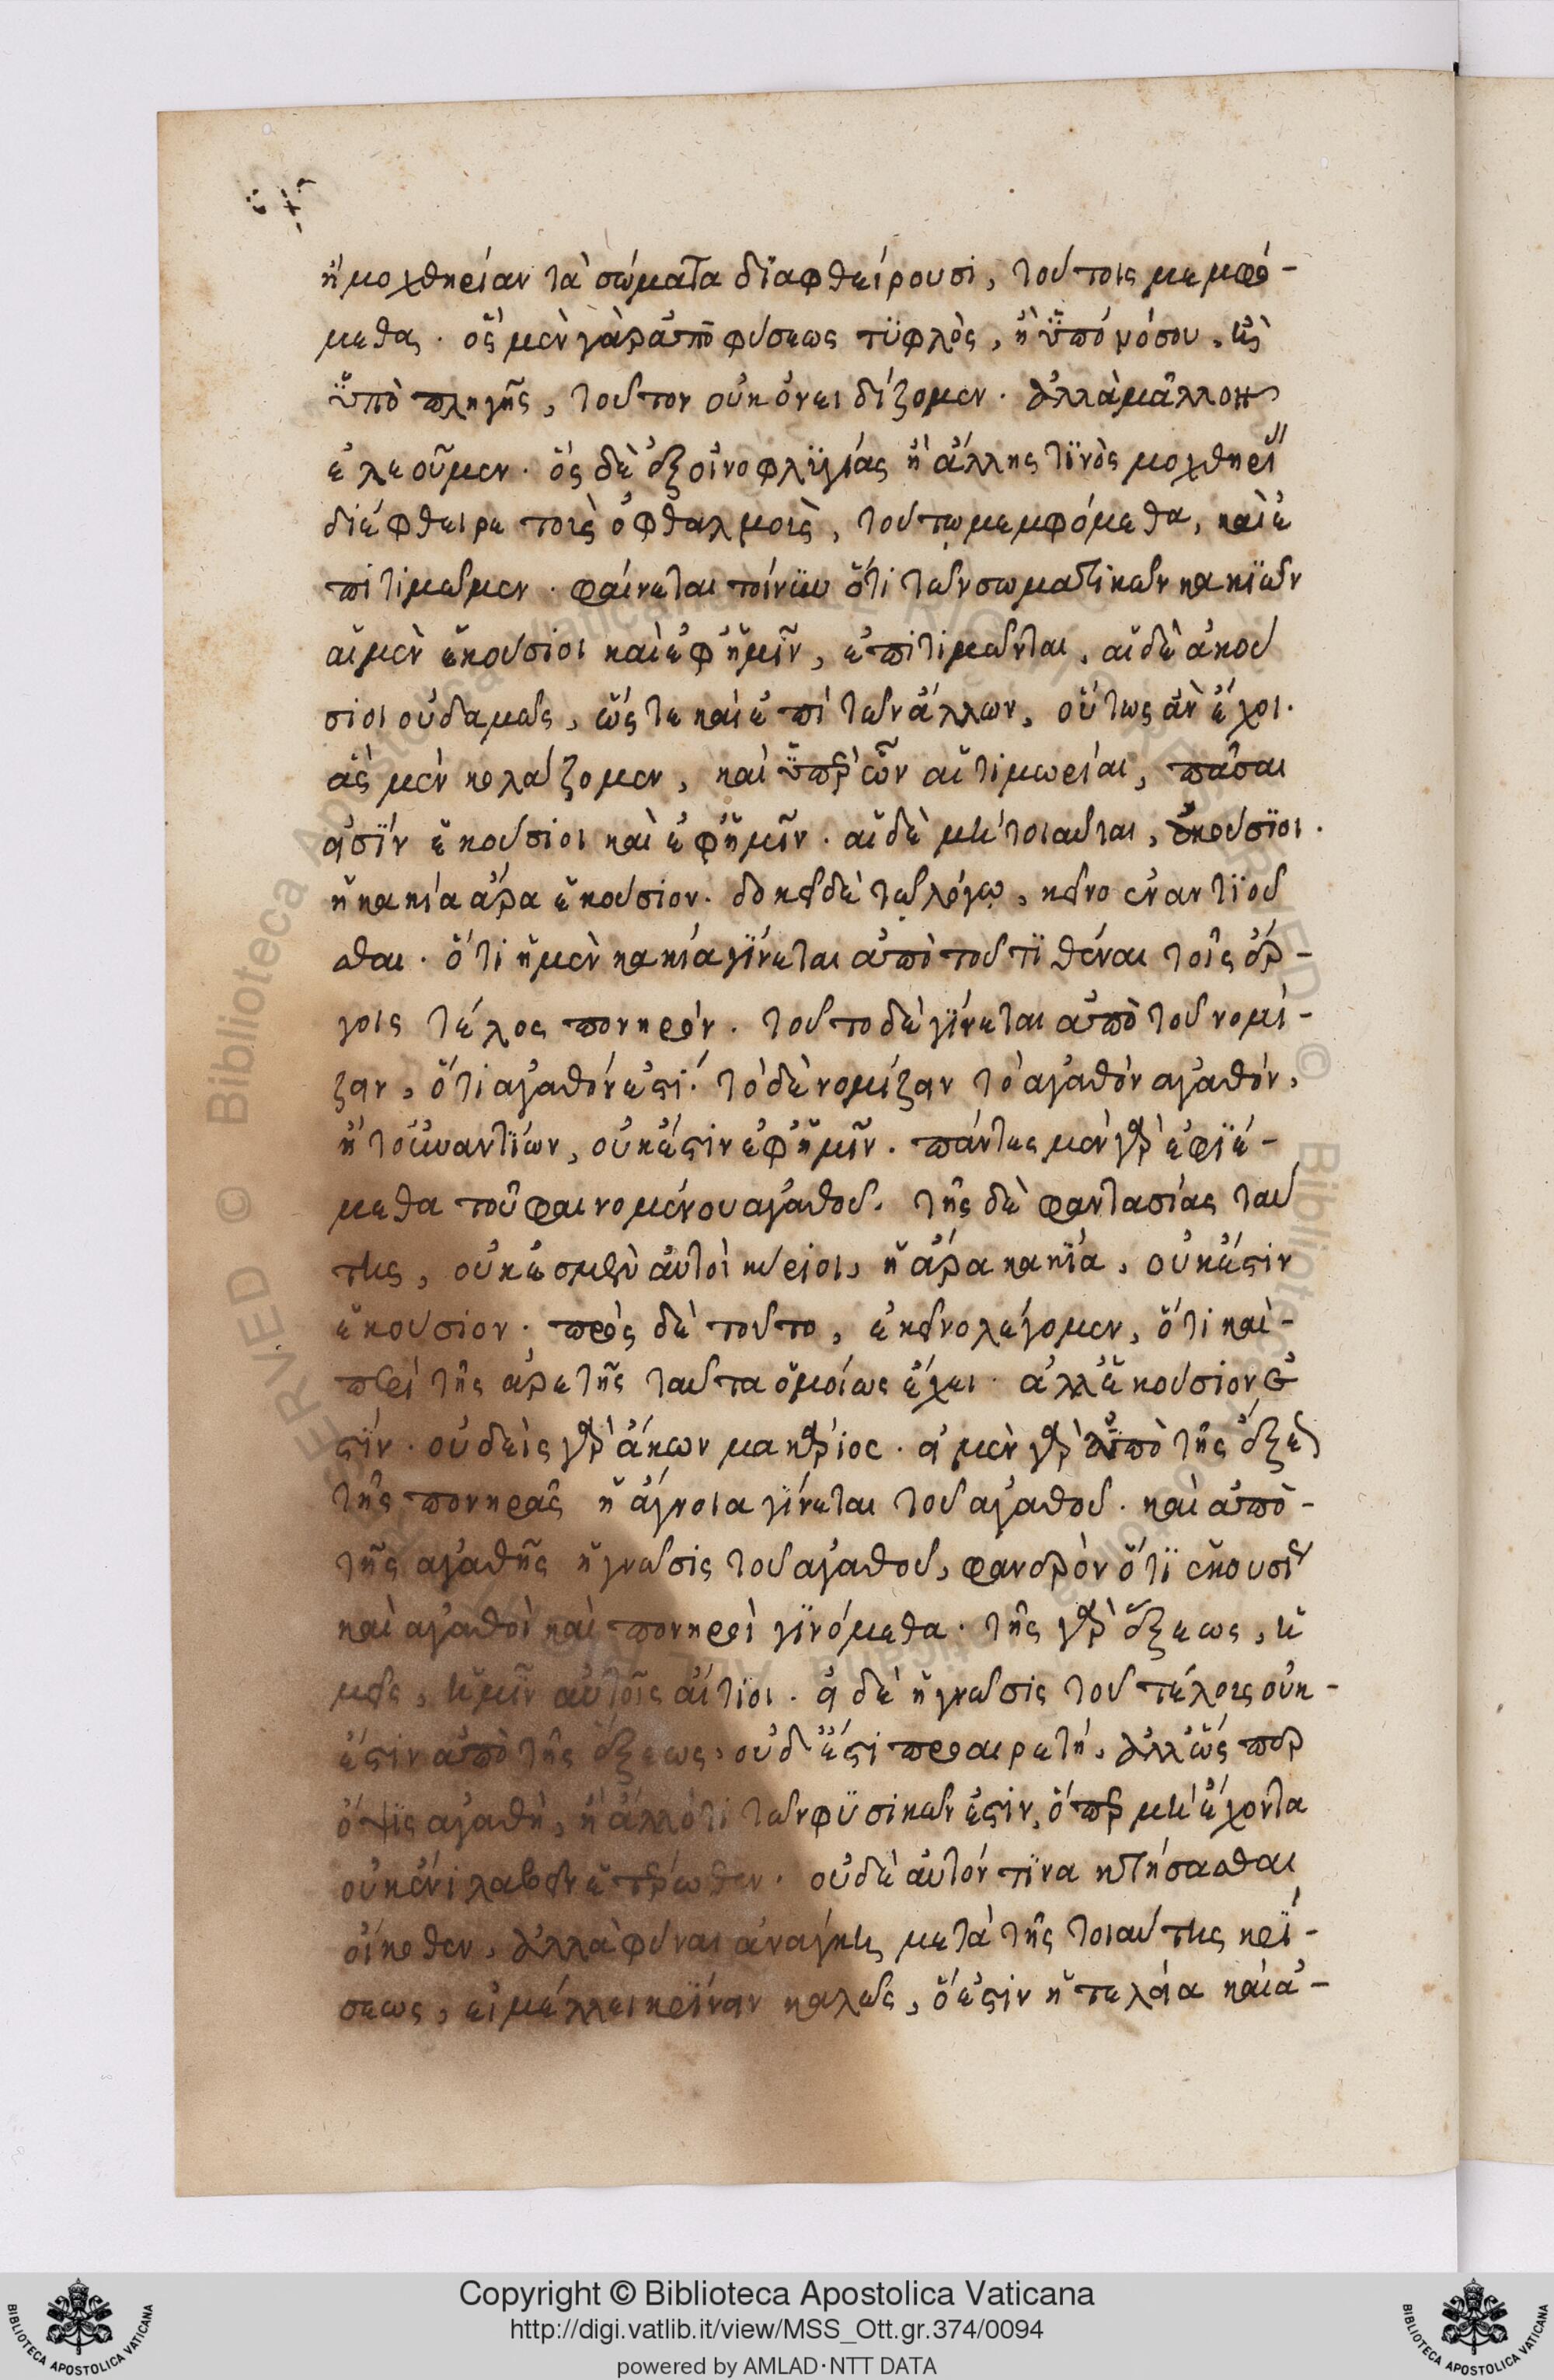 ἢ μοχθηρίαν τὰ σώματα διαφθείρουσι, τούτοις μεμφό-
μεθα. ὃς μὲν γὰρ ἀπὸ φύσεως τϋφλὸς, ἢ ὑπὸ νόσου, ἢ
ὑπὸ πληγῆς, τοῦτον οὐκ ὀνειδίζομεν. ἀλλὰ μᾶλλον
ἐλεοῦμεν. ὃς δὲ ἐξ οἰνοφλϋγίας ἢ ἄλλης τϊνὸς μοχθηρΐ
διέφθειρε τοὶς ὀφθαλμοὶς, τούτῳ μεμφόμεθα, καὶ ἐ
πιτιμῶμεν. φαίνεται τοίνϋν ὅτι τῶν σωματικῶν κακϊῶν
αἱ μὲν ἑκούσιοι καὶ ἐφ ἡμῖν, ἐπιτιμῶνται, αἱ δὲ ἀκού
σιοι οὐδαμῶς, ὥς τε καὶ ἐπὶ τῶν ἄλλων, οὕτως ἂν ἔχοι.
ἃς μὲν κολάζομεν, καὶ ὑπὲρ ὧν αἱ τιμωρίαι, πᾶσαι
εἰσΐν ἑκούσιοι καὶ ἐφ ἡμῖν. αἱ δὲ μὴ τοιαῦται, ἀκούσϊοι.
ἡ κακία ἄρα ἑκούσιον. δοκεῖ δὲ τῷ λόγῳ, κεῖνο ἐναντϊοῦ
σθαι. ὅτι ἡ μὲν κακία γΐνεται ἀπὸ τοῦ τϊθέναι τοῖς ἔρ-
γοις τέλος πονηρόν. τοῦτο δὲ γΐνεται ἀπὸ τοῦ νομί-
ζειν, ὅτι ἀγαθόν ἐστι. τὸ δὲ νομίζειν τὸ ἀγαθὸν ἀγαθόν,
ἢ τοὐναντΐων, οὐκ ἔστιν ἐφ ἡμῖν. πάντες μὲν γὰρ ἐφϊέ-
μεθα τοῦ φαινομένου ἀγαθοῦ. τῆς δὲ φαντασίας ταύ
της, οὐκ ἐσμὲν αὐτοὶ κύριοι, ἡ ἄρα κακΐα, οὐκ ἔστιν
ἑκούσιον. πρὸς δὲ τοῦτο, ἐκεῖνο λέγομεν, ὅτι καὶ-
περὶ τῆς ἀρετῆς ταῦτα ὁμοίως ἔχει. ἀλλ ἑκούσιον ἐ
στΐν. οὐδεὶς γὰρ ἄκων μακάριος. εἰ μὲν γὰρ ἀπὸ τῆς ἕξε
τῆς πονηρᾶς ἡ ἄγνοια γΐνεται τοῦ ἀγαθοῦ. καὶ ἀπὸ-
τῆς ἀγαθῆς ἡ γνῶσις τοῦ ἀγαθοῦ, φανερὸν ὅτϊ ἑκουσί
καὶ ἀγαθοὶ καὶ πονηροὶ γϊνόμεθα. τῆς γὰρ ἕξεως, ἡ
μεῖς, ἡμῖν αὐτοῖς αἴτϊοι. εἰ δὲ ἡ γνῶσις τοῦ τέλοις οὐκ-
ἔστιν ἀπὸ τῆς ἕξεως, οὐδ ἔστι προαιρετή. ἀλλ ὥς περ
ὄψις ἀγαθὴ, ἢ ἄλλό τι τῶν φϋσικῶν ἐστιν, ὅπερ μὴ ἔχοντα
οὐκ ἔνι λαβεῖν ἑτέρωθεν. οὐδὲ αὐτόν τϊνα κτήσασθαι
οἴκοθεν, ἀλλὰ φῦναι ἀνάγκη μετὰ τῆς τοιαύτης κρΐ-
σεως, εἰ μέλλει κρΐνειν καλῶς, ὅ ἐστιν ἡ τελεία καὶ ἀ-
Copyright © Biblioteca Apostolica Vaticana
http://digi.vatlib.it/view/MSS_Ott.gr.374/0094
powered by AMLAD·NTT DATA